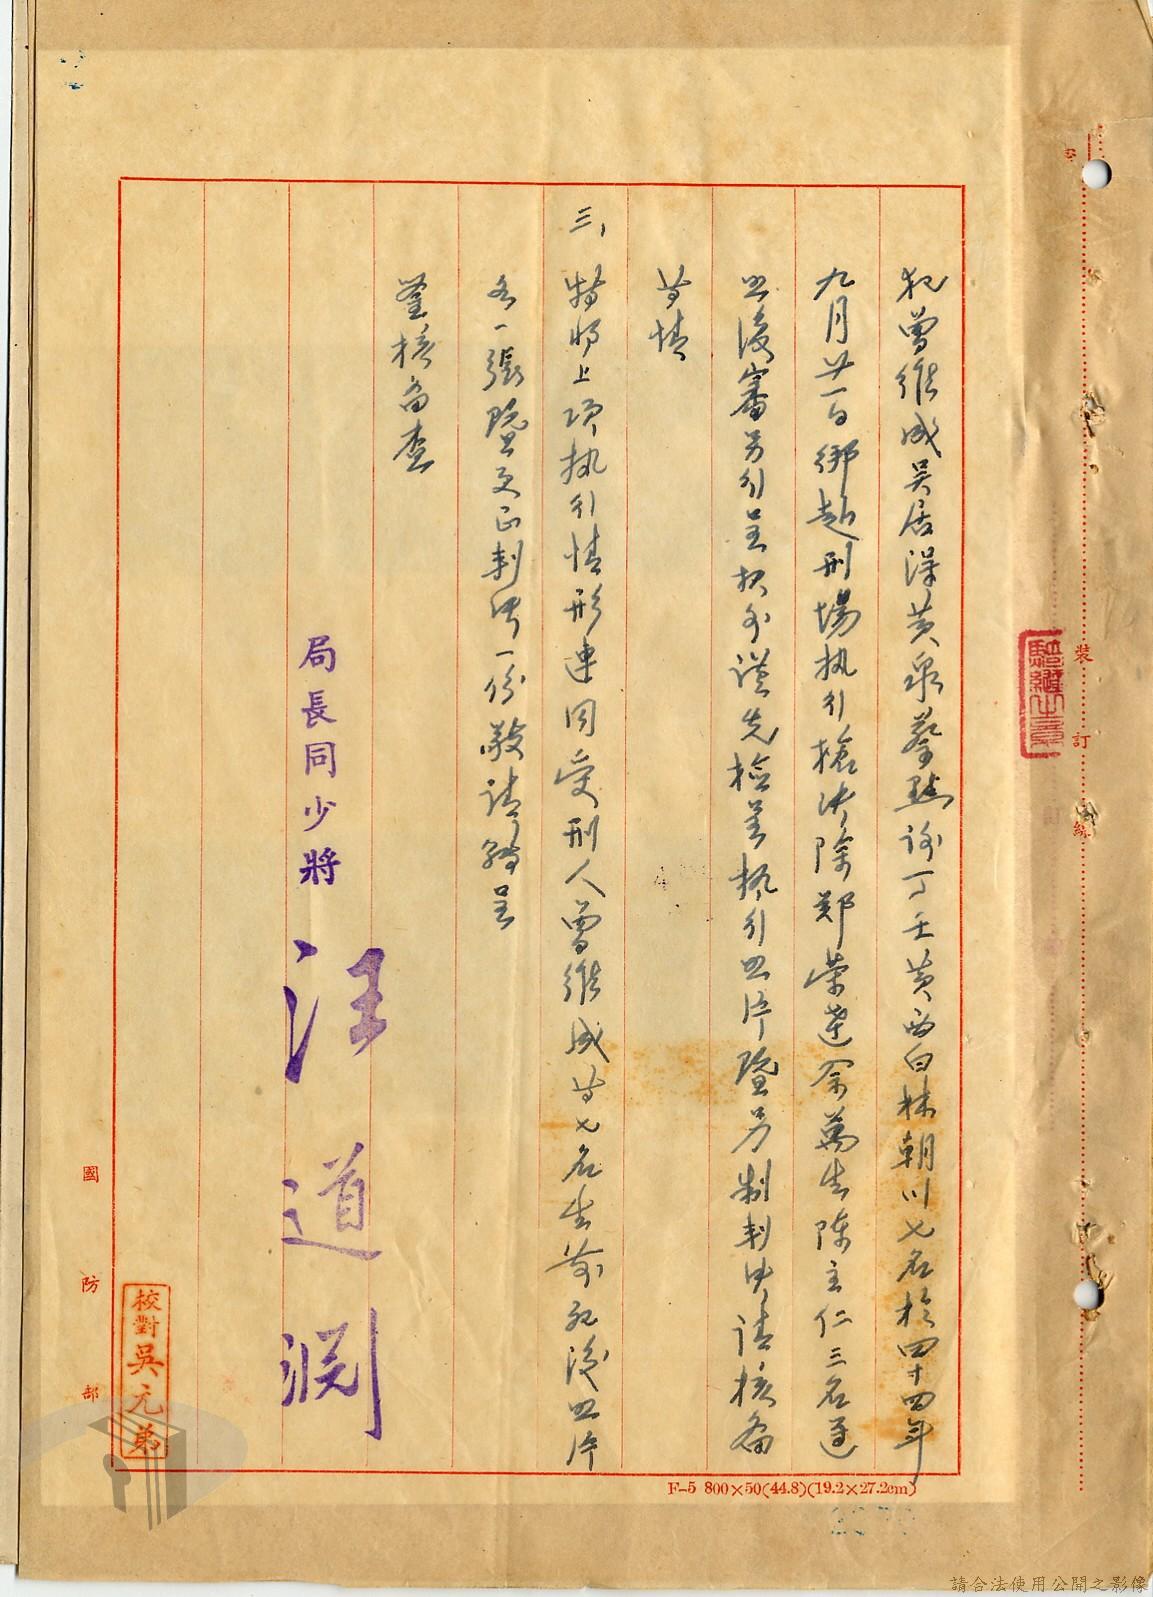 犯曾維成吳居深黃泉蔡豔謝丁壬黃西白林朝川七名於四十四年
九月廿一日綁赴刑場执行槍决除鄭榮蓮余萬生陳主仁三名遵
照復審另行呈报外謹先檢美执行照片暨另制判决請核备
等情
三、特將上項执行情形連同受刑人曾維成等七名生前死後照片
各一張暨更正判决一份敬請轉呈
鉴核备查
局長同少將
汪道淵
校對吳元弟
國防部
裝訂線
F-5 800×50(44.8)(19.2×27.2cm)
請合法使用公開之影像